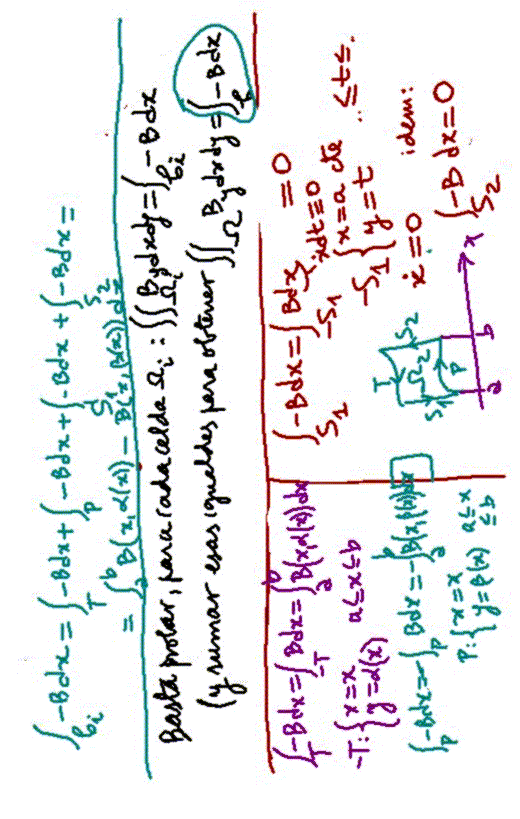 ∫_{ℓ_i} -Bdx = ∫_T -Bdx + ∫_P -Bdx + ∫_{S_1} -Bdx + ∫_{S_2} -Bdx =
= ∫_a^b B(x,α(x)) - B(x,β(x)) dx
Basta probar, para cada celda Ω_i: ∬_{Ω_i} B_y dxdy = ∫_{ℓ_i} -Bdx
(y sumar esas igualdes para obtener ∬_Ω B_y dxdy = ∫_ℓ -Bdx
∫_T -Bdx = ∫_{-T} Bdx = ∫_a^b B(x,α(x))dx
-T: { x=x
y=α(x) a≤x≤b
∫_P -Bdx = -∫_P Bdx = -∫_a^b B(x,β(x))dx
P: { x=x
y=β(x) a≤x≤b
∫_{S_1} -Bdx = ∫_{-S_1} Bdx = 0
ẋdt=0
-S_1 { x=a cte
y=t ..≤t≤..
ẋ=0 idem:
∫_{S_2} -Bdx=0
T
S_1 Ω_2 S_2
P
a b x